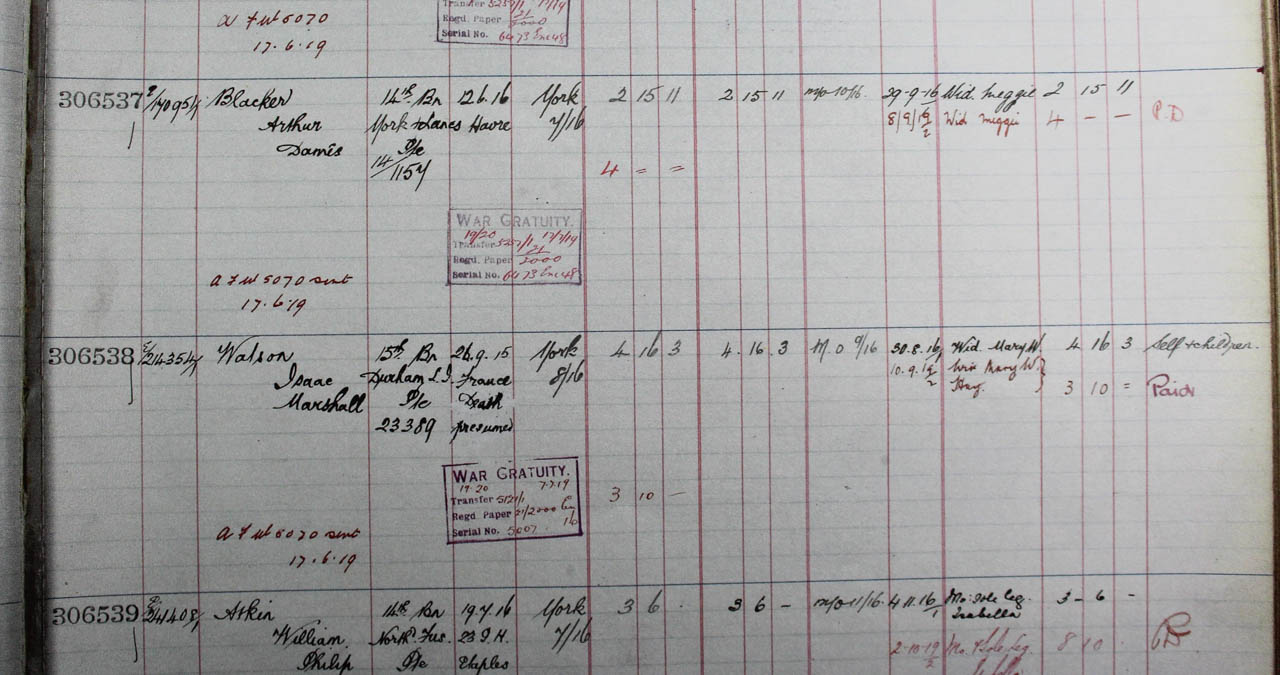 a F W 5070
17.6.19
Transfer 5257/1 17/7/19
Regd. Paper 21/2000
Serial No. 6473 Enc 48
306537 Blacker 14th Bn 12.6.16 York 2 15 11 2 15 11 m/o 10/16. 29-9-16 Wid. Meggie 2 15 11
Arthur York & Lancs Havre 7/16 8/9/19 Wid Meggie 4 – – P.D
Pte
14/1157 4 = =
WAR GRATUITY.
19/20 17/7/19
Transfer 5257/1
Regd. Paper 21/2000
Serial No. 6473 Enc 48
a F W 5070 sent
17.6.19
306538 Watson 15th Bn 26.9.15 York 4 16 3 4.16 3 M.O 9/16 30.8.16 Wid. Mary W. 4 16 3 Self & children.
Isaac Durham L.I. France 8/16 10.9.19 Wid Mary W.
Marshall Pte Death 3 10 = Paid
23389 presumed
WAR GRATUITY.
19-20 7.7.19
Transfer 5121/1 3 10 –
Regd. Paper 21/2000
Serial No. 5007
a F W 5070 sent
17.6.19
306539 Atkin 14th Bn 19.7.16 York 3 6 . 3 6 – m/o 11/16. 4.11.16 Mo: sole leg. 3 – 6 –
Isabella
William North. Fus. 23 G.H. 7/16
2-10-19 Mo. & Sole leg 8 10 . PD
Philip Pte Etaples